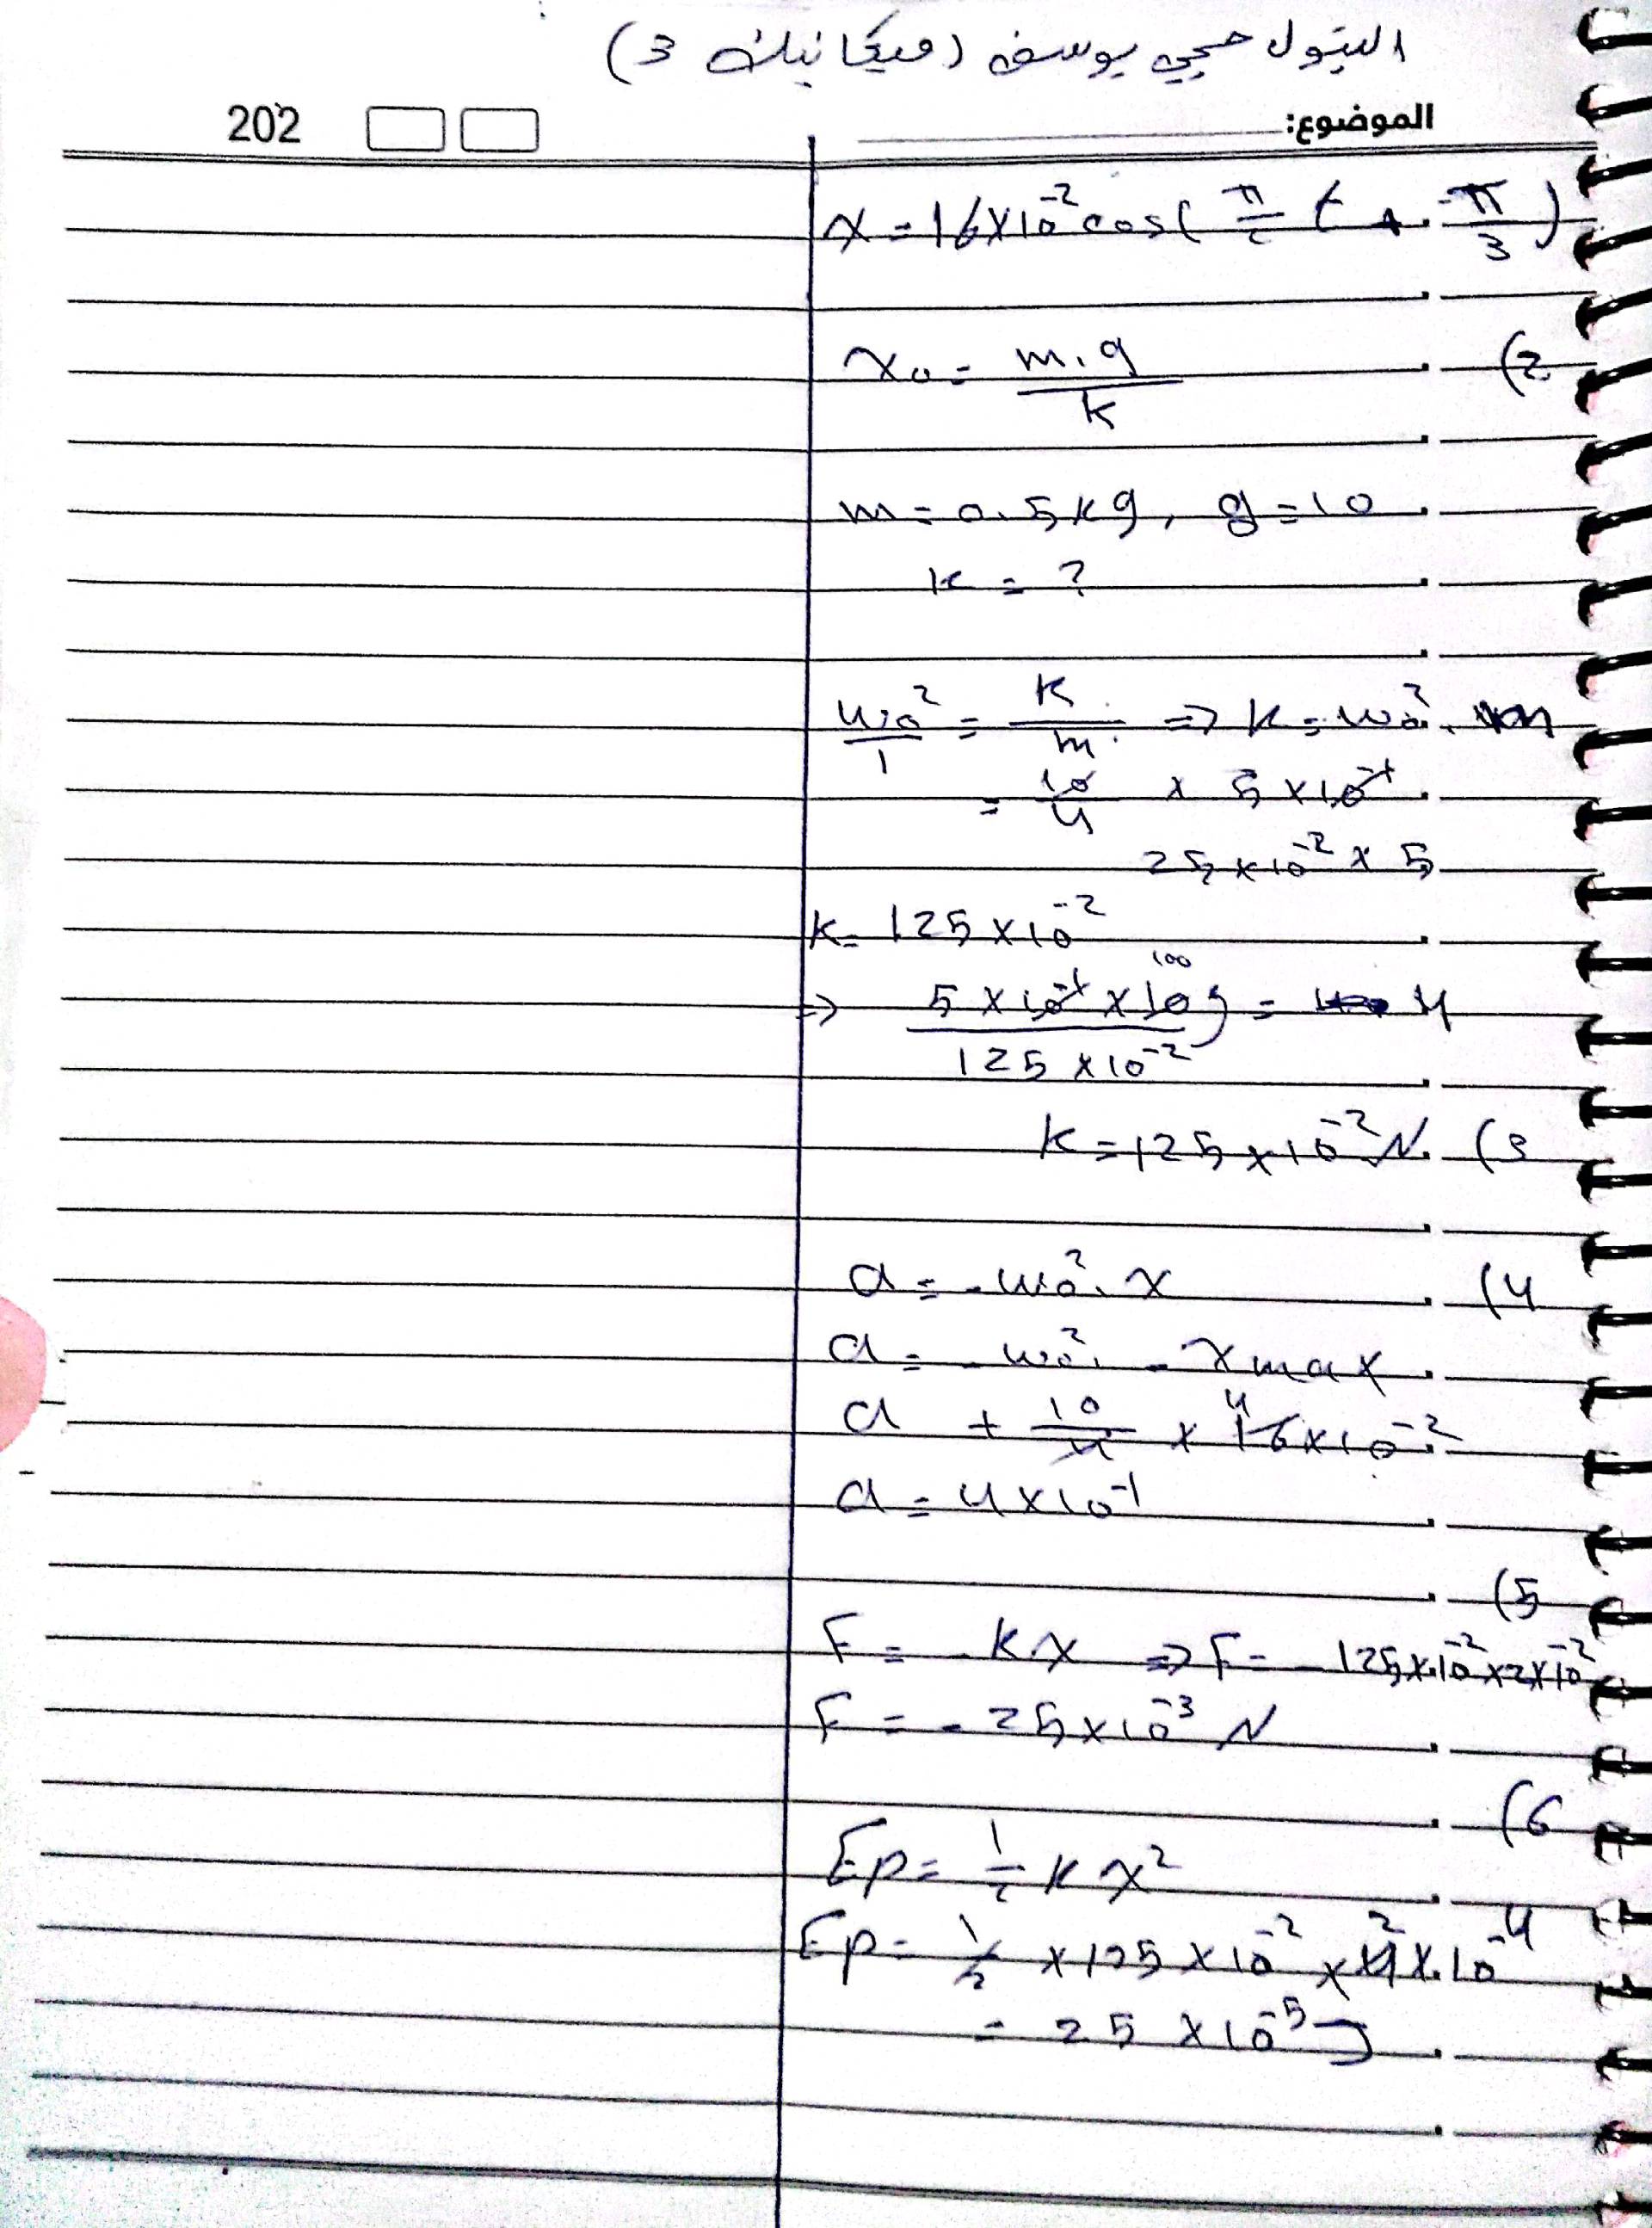 البتول حجي يوسف (ميكانيك 3)
الموضوع:
202
x = 16×10⁻² cos( π/2 t + -π/3 )
2) x₀ = m.g / k
m = 0.5 kg, g = 10
k = ?
ω₀²/1 = k/m ⇒ k = ω₀² . m
= 10/4 × 5 × 10⁻¹
25 × 10⁻² × 5
k = 125 × 10⁻²
100
⇒ 5 × 10⁻¹ × 10 / 125 × 10⁻² = 4
3) k = 125 × 10⁻² N.
4) a = - ω₀² . x
a = - ω₀² . - x max
a + 10/4 × 16 4 × 10⁻²
a = 4 × 10⁻¹
5)
F = - k.x ⇒ F = - 125 × 10⁻² × 2 × 10⁻²
F = - 25 × 10⁻³ N
6)
Ep = 1/2 k x²
Ep = 1/2 × 125 × 10⁻² × 4 2 × 10⁻⁴
= 25 × 10⁻⁵ J